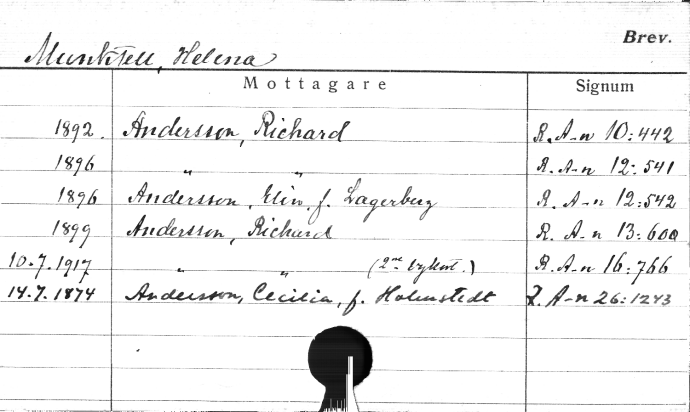 Brev.
Munktell, Helena
Mottagare Signum
1892. Andersson, Richard R. A-n 10:442
1896 " " R. A-n 12:541
1896 Andersson, Elin, f. Lagerberg R. A-n 12:542
1899 Andersson, Richard R. A-n 13:600
10.7.1917 " " (2ne vykort.) R. A-n 16:766
14.7.1874 Andersson, Cecilia, f. Holmstedt Z. A-n 26:1243